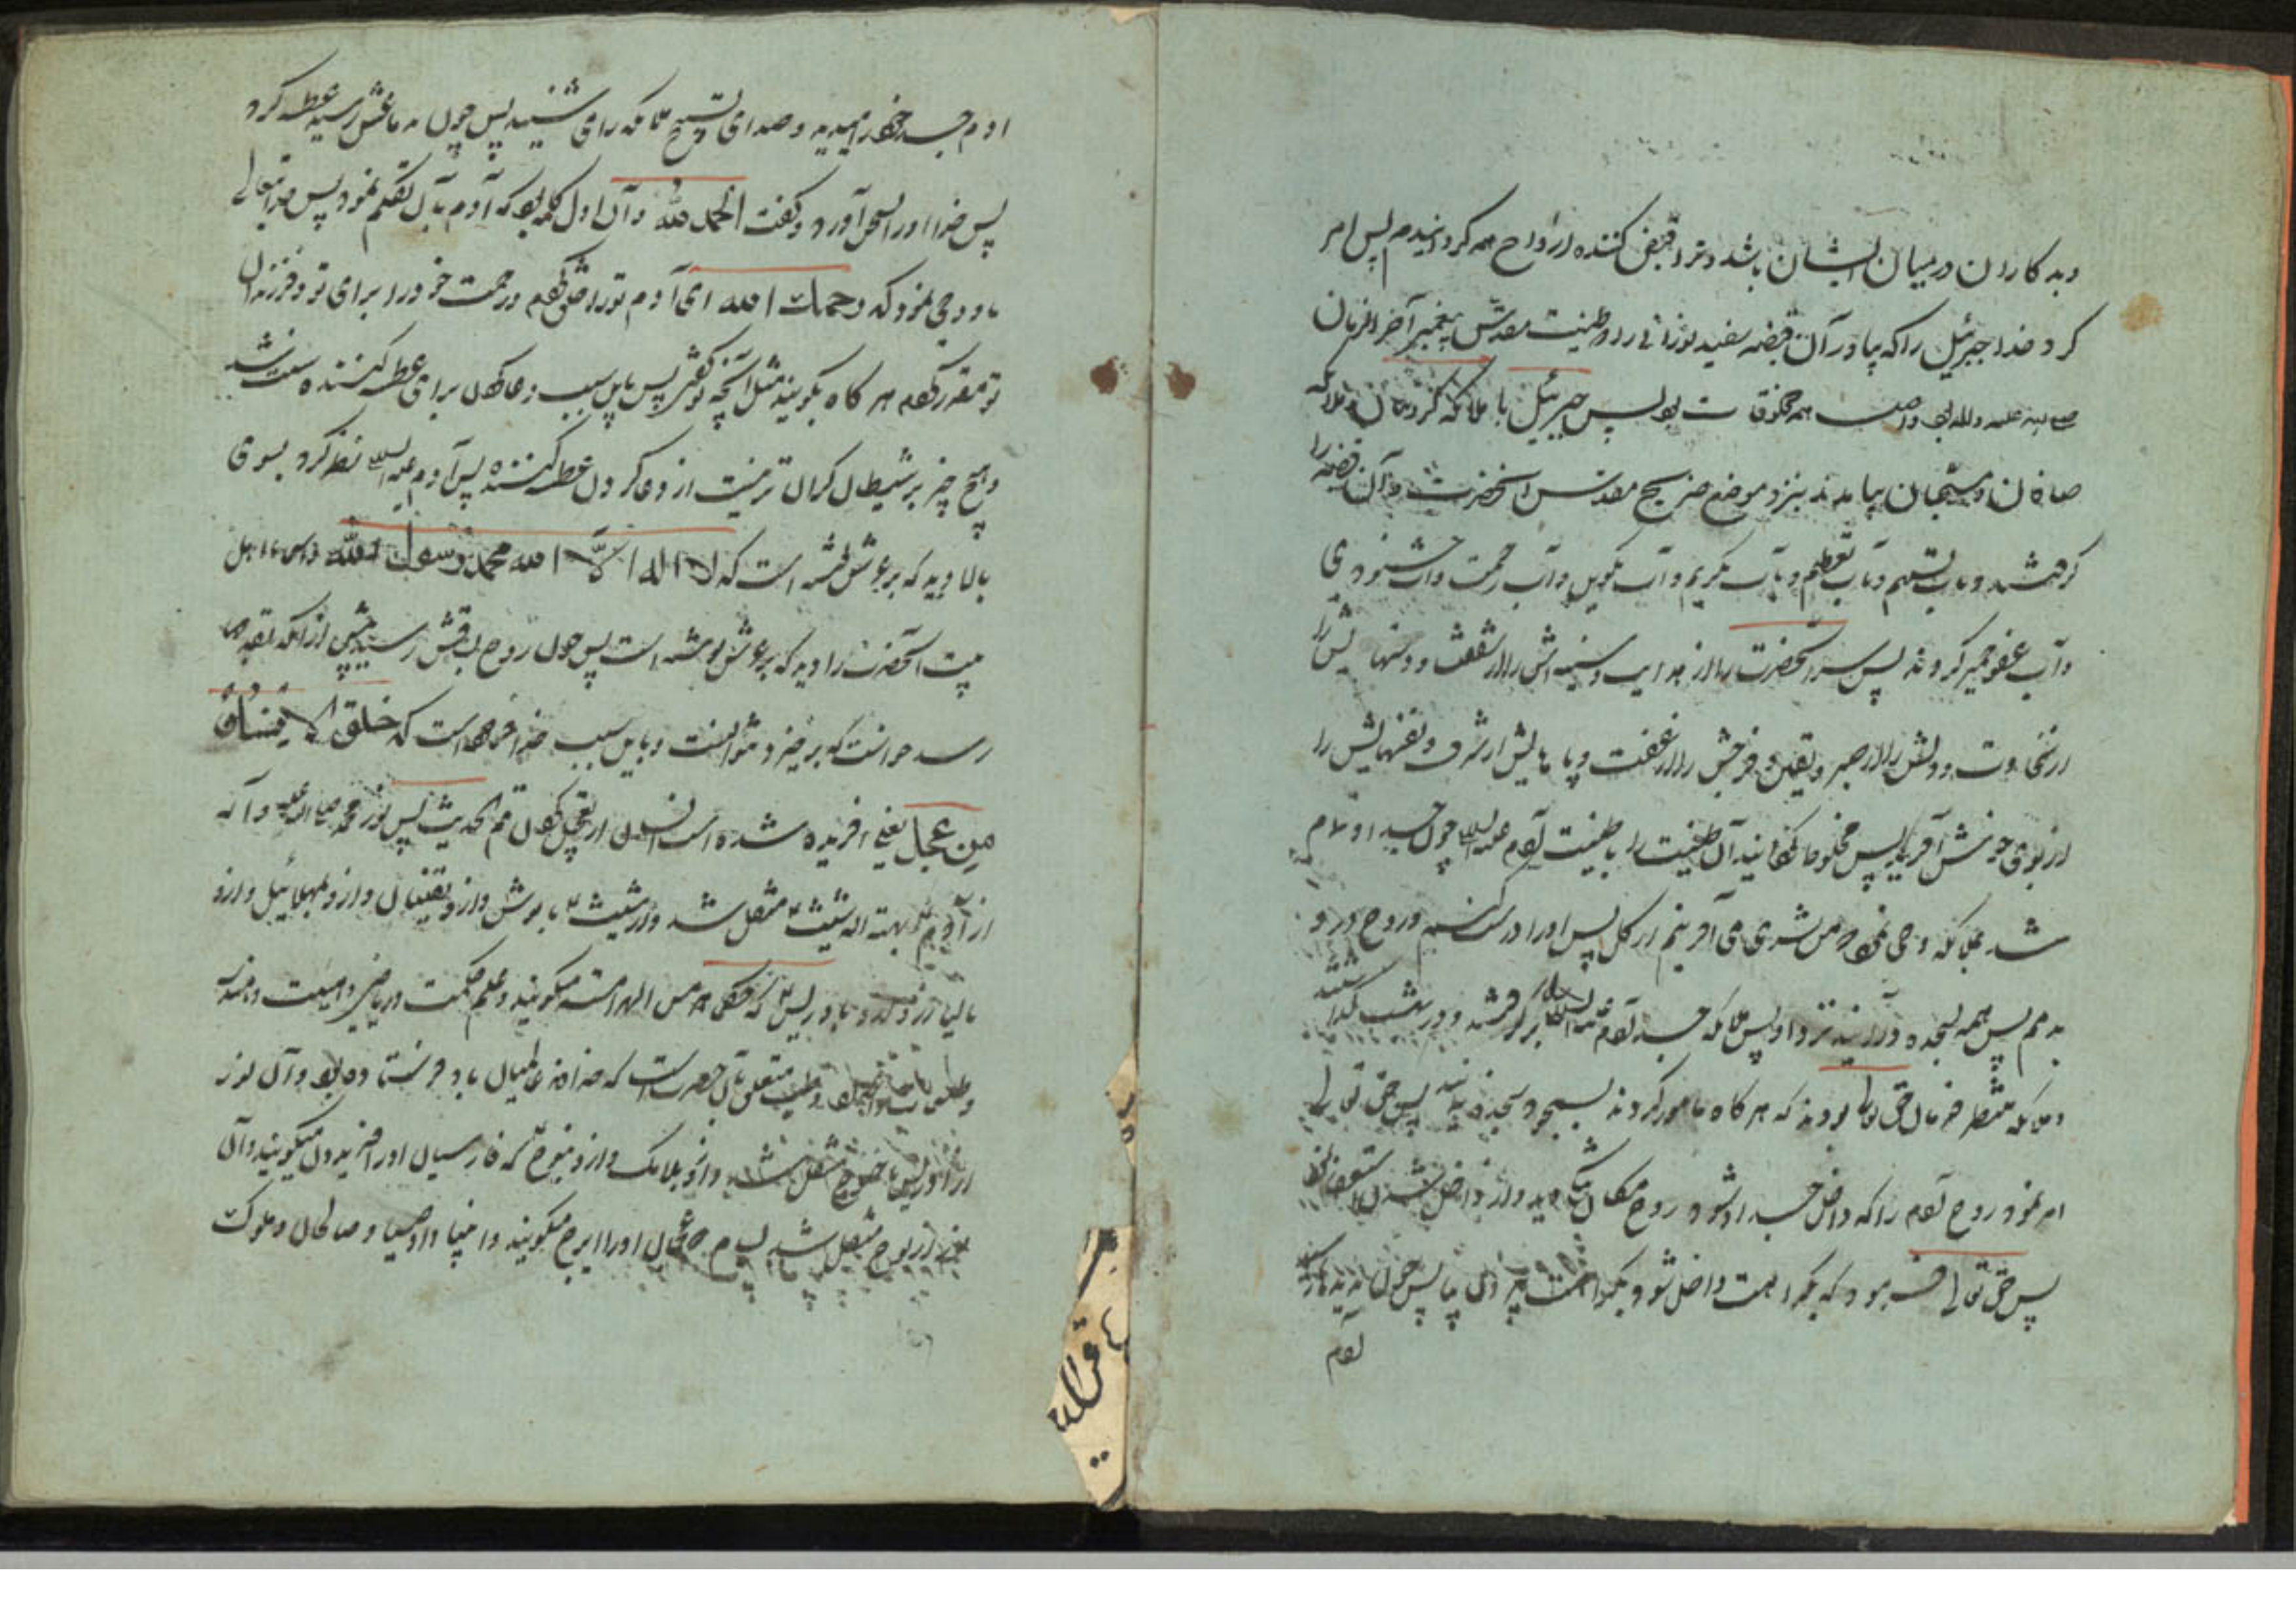 وبدکاران در میان ایشان باشد و ترا قبض کننده ارواح همه کردانیدم پس امر
کرد خدا جبرئیل را که بیاور آن قبضه سفید نورانی را و طینت مقدس پیغمبر آخر الزمان
بود پس جبرئیل با ملائکه کروبیان و ملائکه
صافان و مسبحان بیامدند بنزد موضع ضریح مقدس آنحضرت و آن قبضه را
کرفتند و بآب تسنیم و بآب تعظیم و بآب تکریم و آب تکوین و آب رحمت و آب خشنودی
و آب عفو خمیر کردند پس سر آنحضرت را از هدایت و سینه اش را از شفقت و دستهایش را
از سخاوت و دلش را از صبر و یقین و فرجش را از عفت و پاهایش از شرف و نفسهایش را
از بوی خوش آفرید پس مخلوط کردانید آن طینت را با طینت آدم علیه السلام چون جسد او تمام
شد بملائکه وحی نمود من بشری می آفرینم از کل پس او را درست کنم و روح در او
بدمم پس همه بسجده درآئید نزد او پس ملائکه جسد آدم علیه السلام بر کرفتند و در بهشت کذاشتند
و ملائکه منتظر فرمان حق تعالی بودند که هر کاه مامور کردند بسجود سجده نمایند پس حق تعالی
امر نمود روح آدم را که داخل جسد او شود روح مکان تنک دید و از داخل شدن استعفا نمود
پس حق تعالی فرمود که بکراهت داخل شو و بکراهت بیرون بیا پس چون بدیده‌ها رسید
آدم
آدم جسد خود را میدید و صدای تسبیح ملائکه را می شنید پس چون بدماغش رسید عطسه کرد
پس خدا او را بسخن آورد و کفت الحمد لله و آن اول کلمه بود که آدم بآن تکلم نمود پس حق تعالی
باو وحی نمود که رحمك الله ای آدم تو را خلق کردم و رحمت خود را برای تو و فرزندان
تو مقرر کردم هر کاه بکویند مثل آنچه تو کفتی پس باین سبب دعا کردن برای عطسه کننده سنت شد
و هیچ چیز بر شیطان کران تر نیست از دعا کردن عطسه کننده پس آدم علیه السلام نظر کرد بسوی
بالا و دید که بر عرش نوشته است که لا اله الا الله محمد رسول الله و اسماء اهل
بیت آنحضرت را دید که بر عرش نوشته است پس چون روح بساقش رسید پیش از آنکه بقدمها
رسد خواست که برخیزد نتوانست و باین سبب خدا فرموده است که خلق الانسان
من عجل یعنی آفریده شده است انسان از تعجیل کردن تم الحدیث پس نور محمد صلی الله علیه و آله
از آدم به هبته الله شیث منتقل شد و از شیث بانوش و از او بقینان و از او بمهلائیل و از او
بالیارد و از او بادریس که حکما هرمس الهرامسه میکویند و علم حکمت و ریاضی و هیئت و هندسه
و طلسمات و طب متعلق بآن حضرت است که خدا بعالمیان باو فرستاده بود و آن نور
از ادریس باخنوخ منتقل شد و از او بلامک و از او بنوح که فارسیان او را فریدون میکویند و آن
نور از نوح منتقل شد بسام که عجمان او را ایرج میکویند و انبیا و اوصیا و صالحان و ملوک